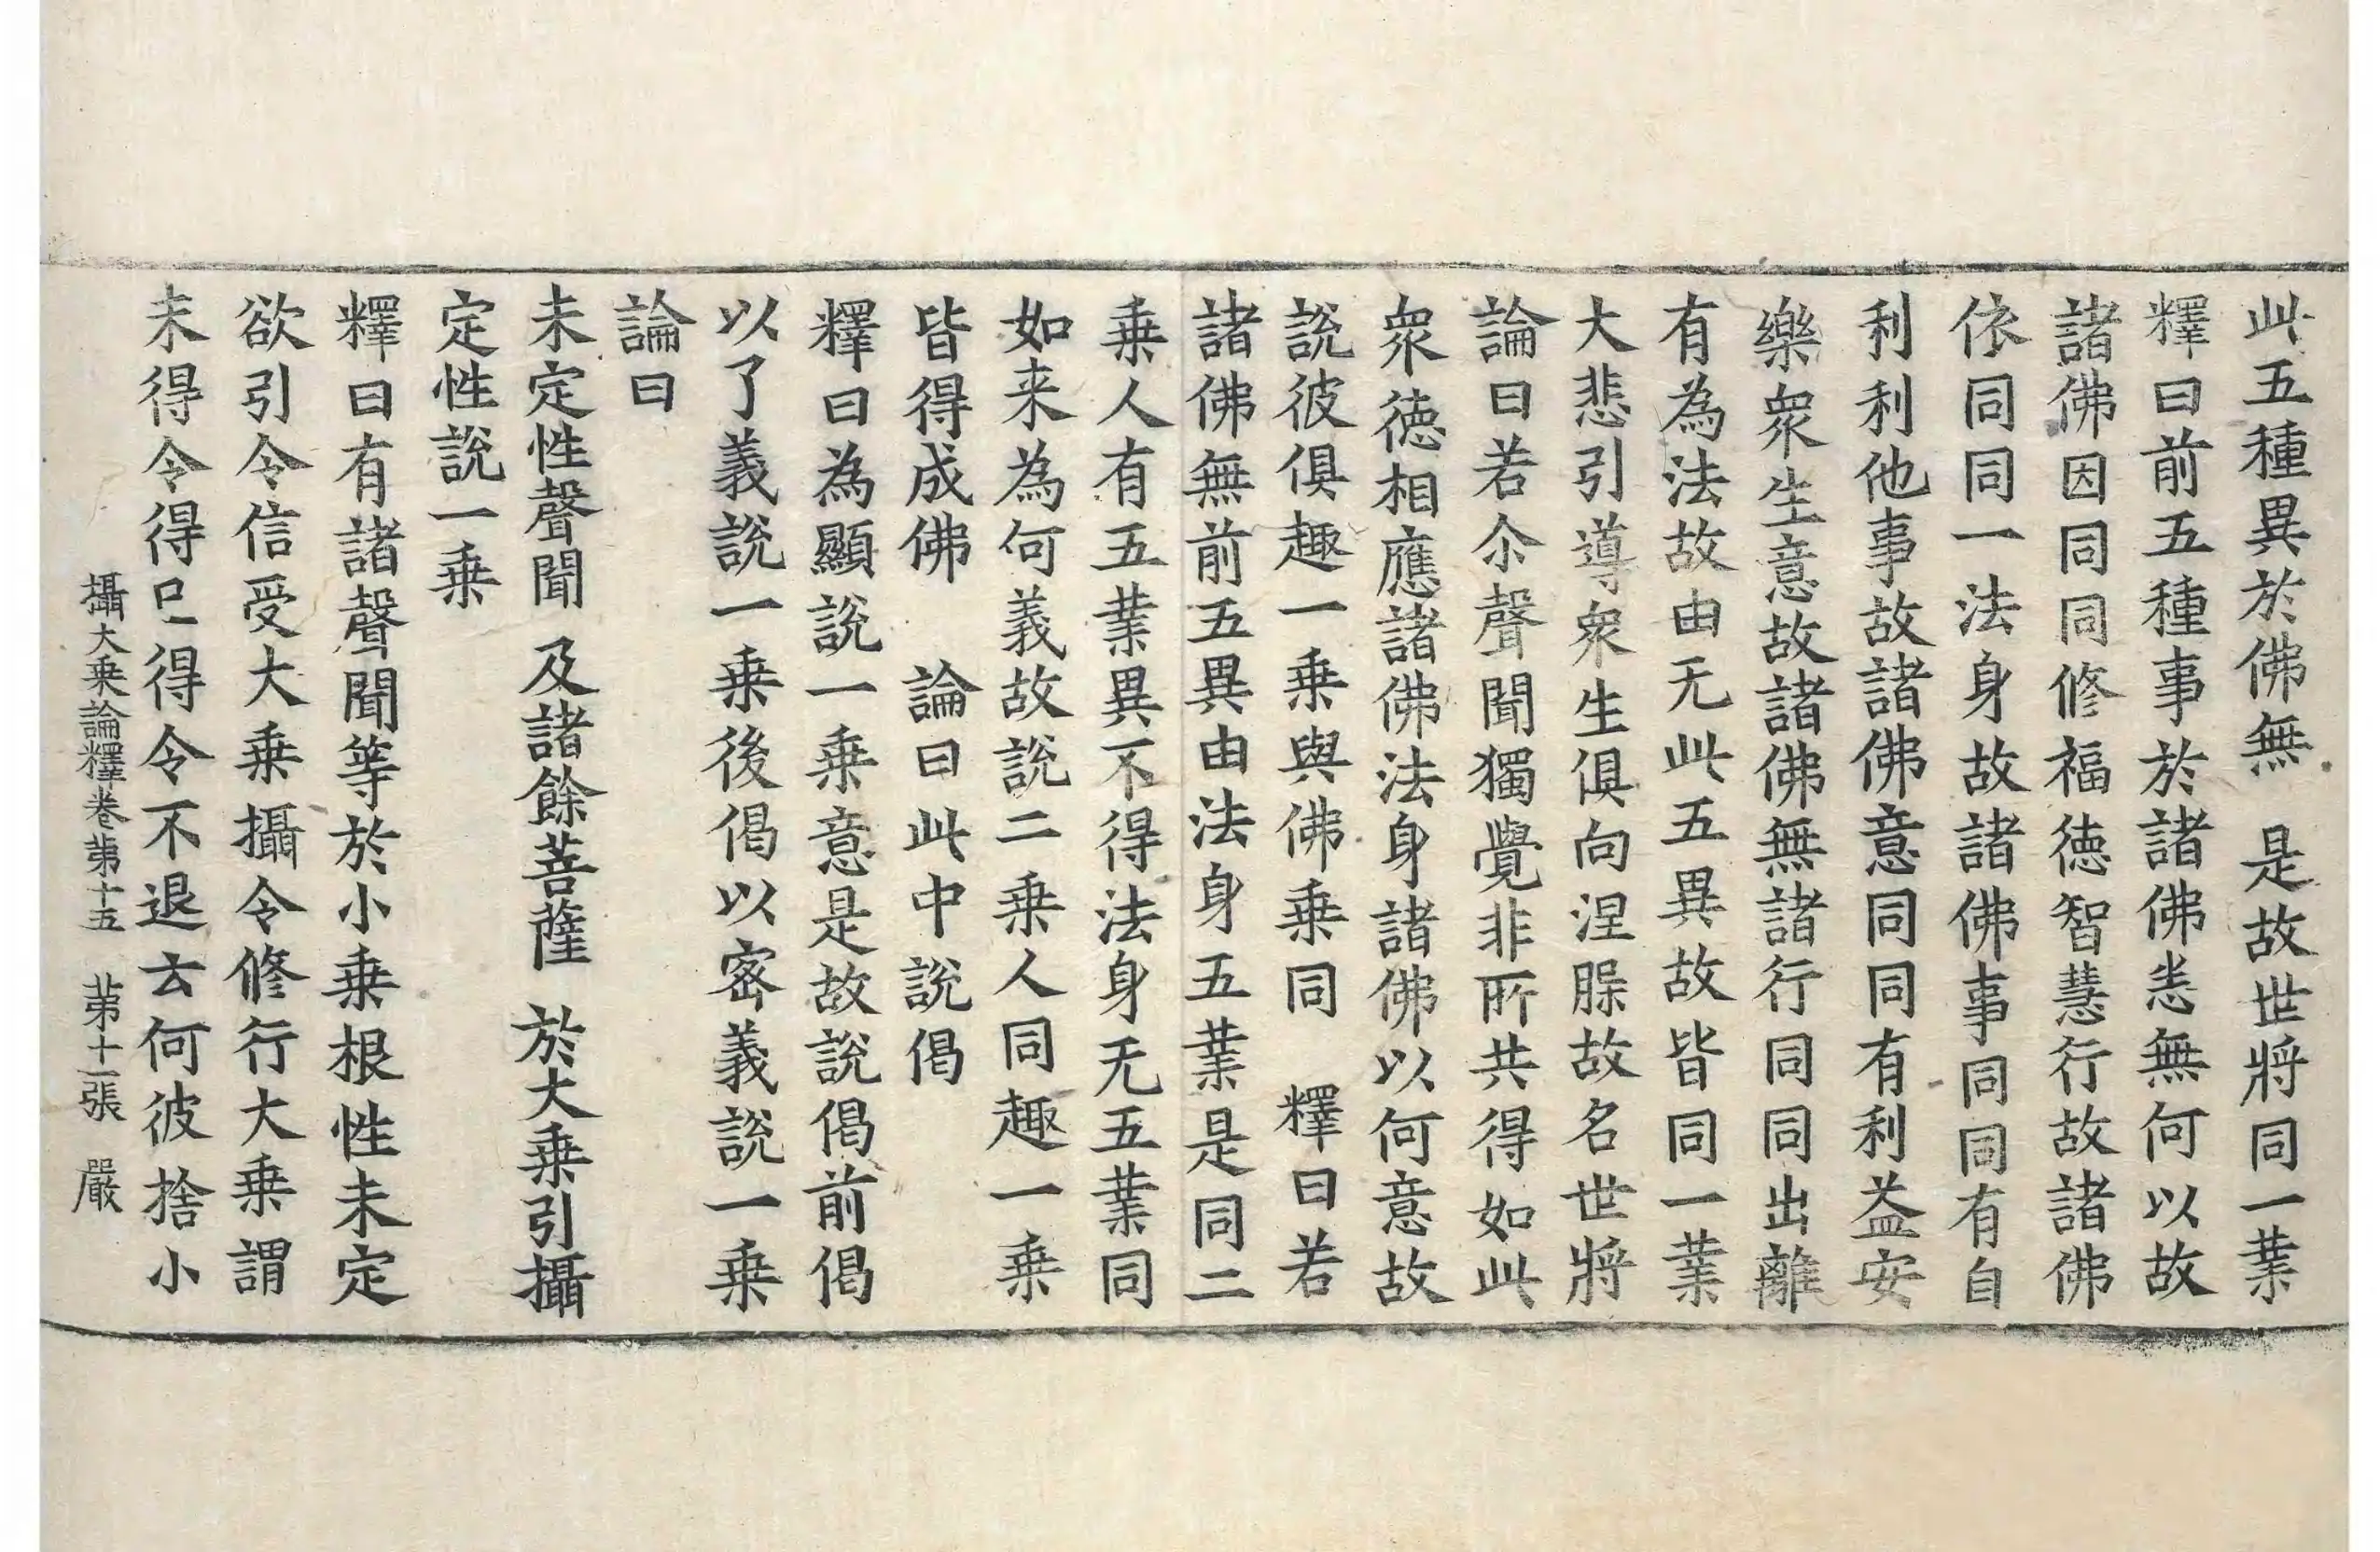 此五種異於佛無　是故世將同一業
釋曰前五種事於諸佛悉無何以故
諸佛因同同修福徳智慧行故諸佛
依同同一法身故諸佛事同同有自
利利他事故諸佛意同同有利益安
樂衆生意故諸佛無諸行同同出離
有為法故由无此五異故皆同一業
大悲引導衆生俱向涅槃故名世將
論曰若尒聲聞獨覺非所共得如此
衆徳相應諸佛法身諸佛以何意故
說彼俱趣一乗與佛乗同　釋曰若
諸佛無前五異由法身五業是同二
乗人有五業異不得法身无五業同
如来為何義故說二乗人同趣一乗
皆得成佛　論曰此中說偈
釋曰為顯說一乗意是故說偈前偈
以了義說一乗後偈以密義說一乗
論曰
未定性聲聞　及諸餘菩薩　於大乗引攝
定性說一乗
釋曰有諸聲聞等於小乗根性未定
欲引令信受大乗攝令修行大乗謂
未得令得已得令不退云何彼捨小
攝大乗論釋卷苐十五　苐十一張　嚴